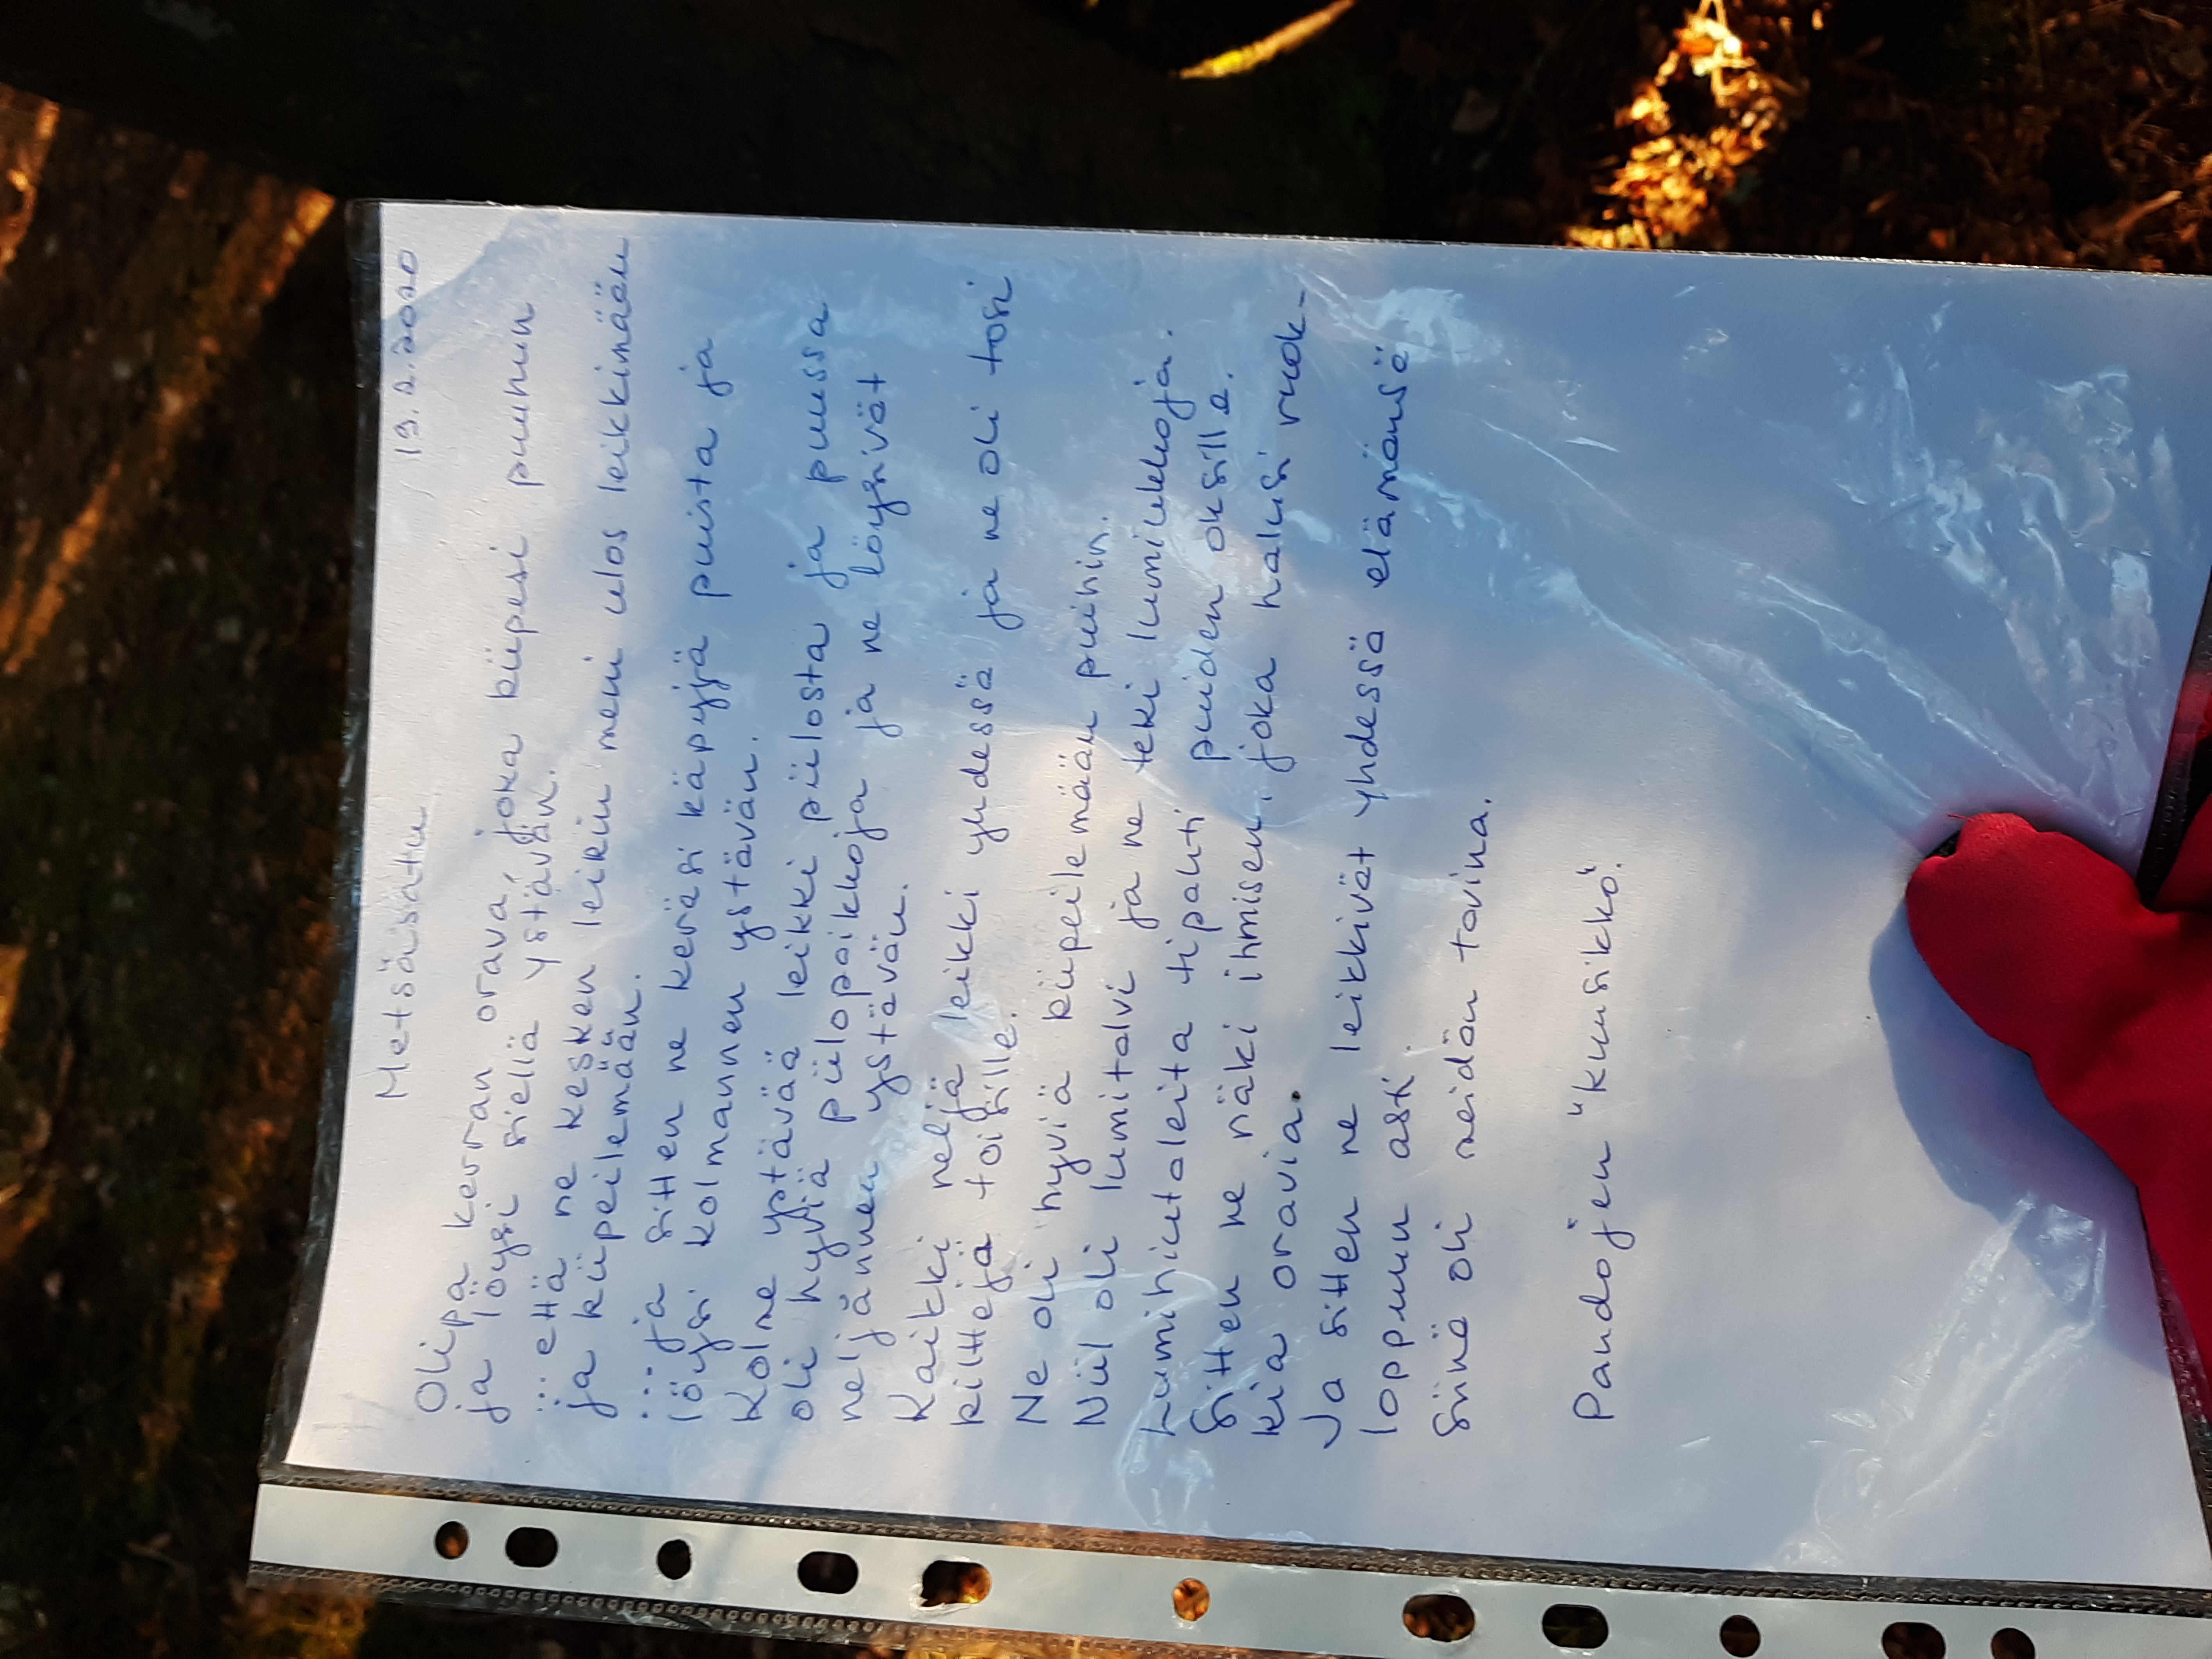 Metsäsatu 19.2.2020
Olipa kerran orava, joka kiipesi puuhun
ja löysi siellä ystävän.
... että ne kesken leikin meni ulos leikkimään
ja kiipeilemään.
... ja sitten ne keräsi käpyjä puista ja
löysi kolmannen ystävän.
Kolme ystävää leikki piilosta ja puussa
oli hyviä piilopaikkoja ja ne löysivät
neljännen ystävän.
Kaikki neljä leikki yhdessä ja ne oli tosi
kilttejä toisille.
Ne oli hyviä kiipeilemään puihin.
Niil oli lumitalvi ja ne teki lumiukkoja.
Lumihiutaleita tipahti puiden oksille.
Sitten ne näki ihmisen, joka halusi ruok-
kia oravia.
Ja sitten ne leikkivät yhdessä elämänsä
loppuun asti.
Siinä oli meidän tarina.
Pandojen "kuusikko".